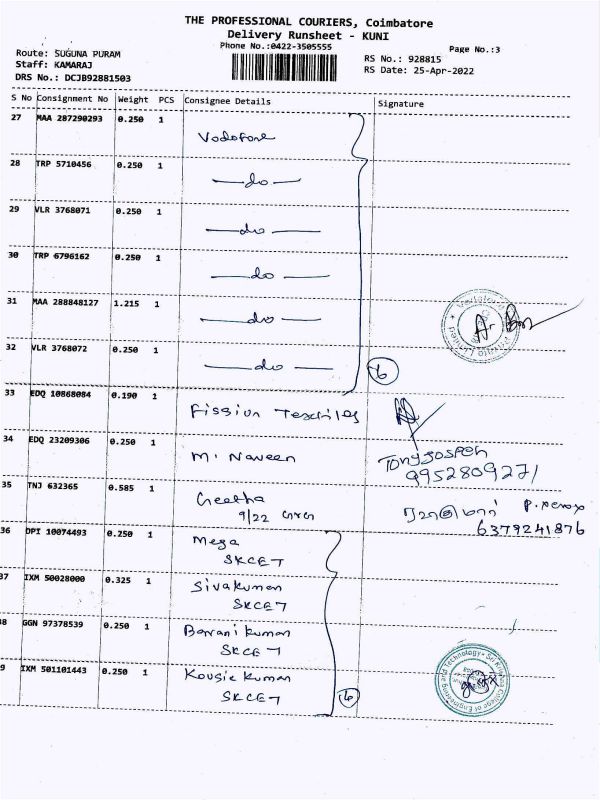 THE PROFESSIONAL COURIERS, Coimbatore
Delivery Runsheet - KUNI
Phone No.:0422-3505555
Page No.:3
Route: SUGUNA PURAM
Staff: KAMARAJ
DRS No.: DCJB92881503
RS No.: 928815
RS Date: 25-Apr-2022
S No Consignment No Weight PCS Consignee Details Signature
27 MAA 287290293 0.250 1
Vodofone
28 TRP 5710456 0.250 1
—do—
29 VLR 3768071 0.250 1
—do—
30 TRP 6796162 0.250 1
—do—
31 MAA 288848127 1.215 1
—do—
32 VLR 3768072 0.250 1
—do— 6
33 EDQ 10868084 0.190 1
Fission Textiles
34 EDQ 23209306 0.250 1
M. Naveen
Tonyjoseph
9952809271
35 TNJ 632365 0.585 1
Geetha
9/22
6379241876
36 DPI 10074493 0.250 1
Mega
SKCET
37 IXM 50028000 0.325 1
Sivakumar
SKCET
38 GGN 97378539 0.250 1
Barranikumar
SKCET
39 IXM 501101443 0.250 1
Kousic kumar
SKCET
Sri Krishna College of Engineering and Technology